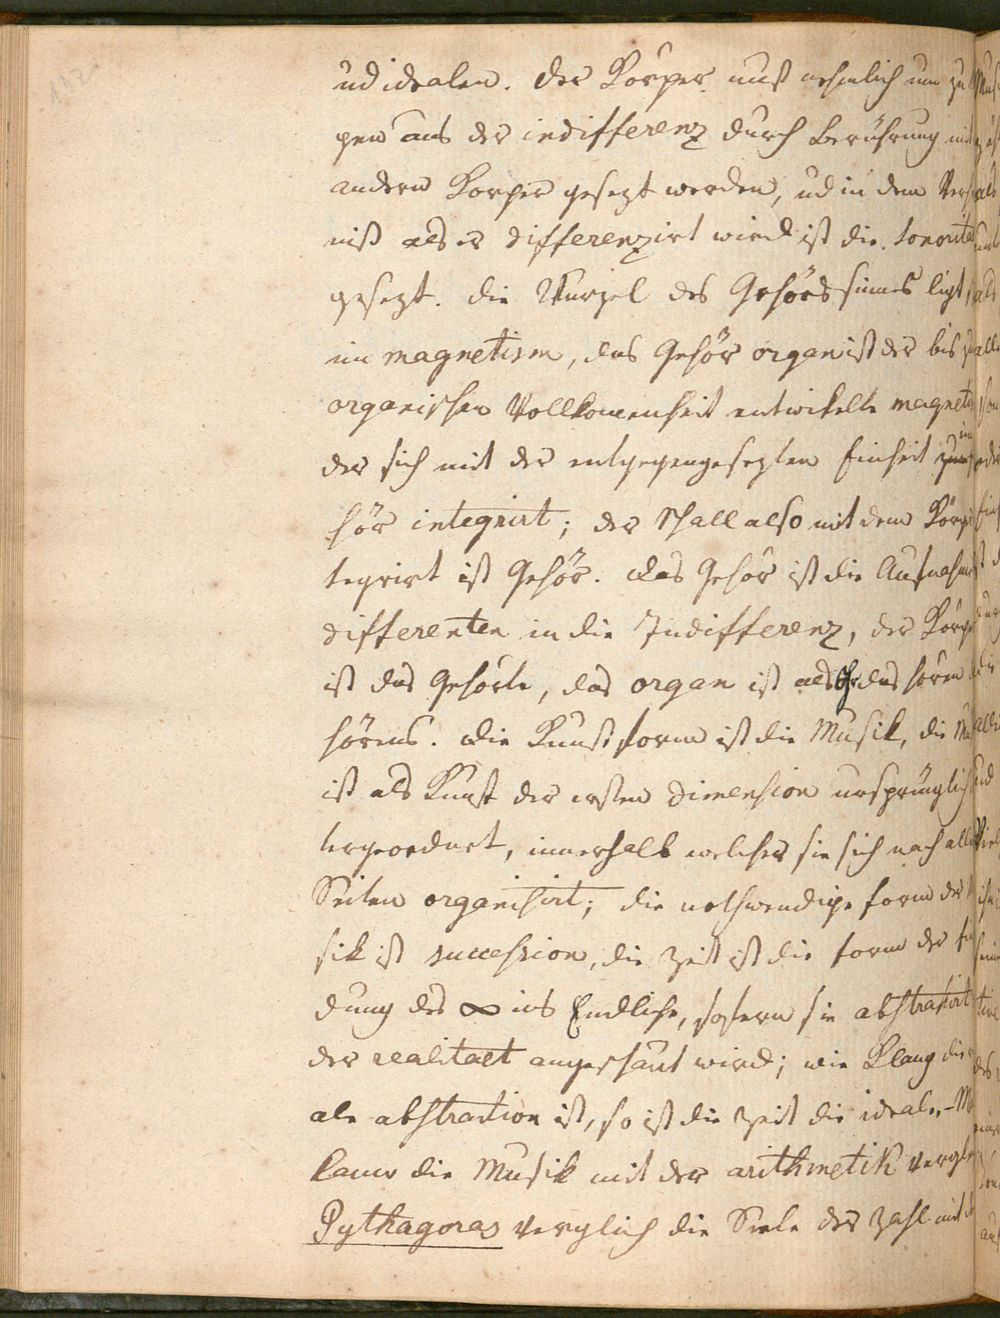 ud idealen. Der Körper muß nehmlich um zu
gen aus der indifferenz durch Berührung mit
andern Korper gesezt werden, ud in dem Ver
niß als er differenzirt wird ist die Sonorität
gesezt. die Wurzel des Gehörssinnes ligt
im magnetism, das Gehör organ ist der bis zu
organischen Vollkomenheit entwikelte magnetis
der sich mit der entgegengesezten Einheit
hör integrirt; der Schall also mit dem Körper
tegrirt ist Gehör. Das Gehör ist die Aufnahme
differenten in die Indifferenz, der Körper
ist das Gehörte, das organ ist als Ohr das hören
hörens. Die Kunst form ist die Musik, die Mu
ist als Kunst der ersten Dimension ursprünglich
tergeordnet, innerhalb welcher sie sich nach allen
Seiten organisirt; die nothwendige form der
sik ist succession, die Zeit ist die form der
dung des ∞ ins Endliche, sofern sie abstrahirt
der realitaet angeschaut wird; wie Klang die
ale abstraction ist, so ist die Zeit die ideale - M
kann die Musik mit der arithmetik vergl
Pythagoras verglich die Seele der Zahl mit